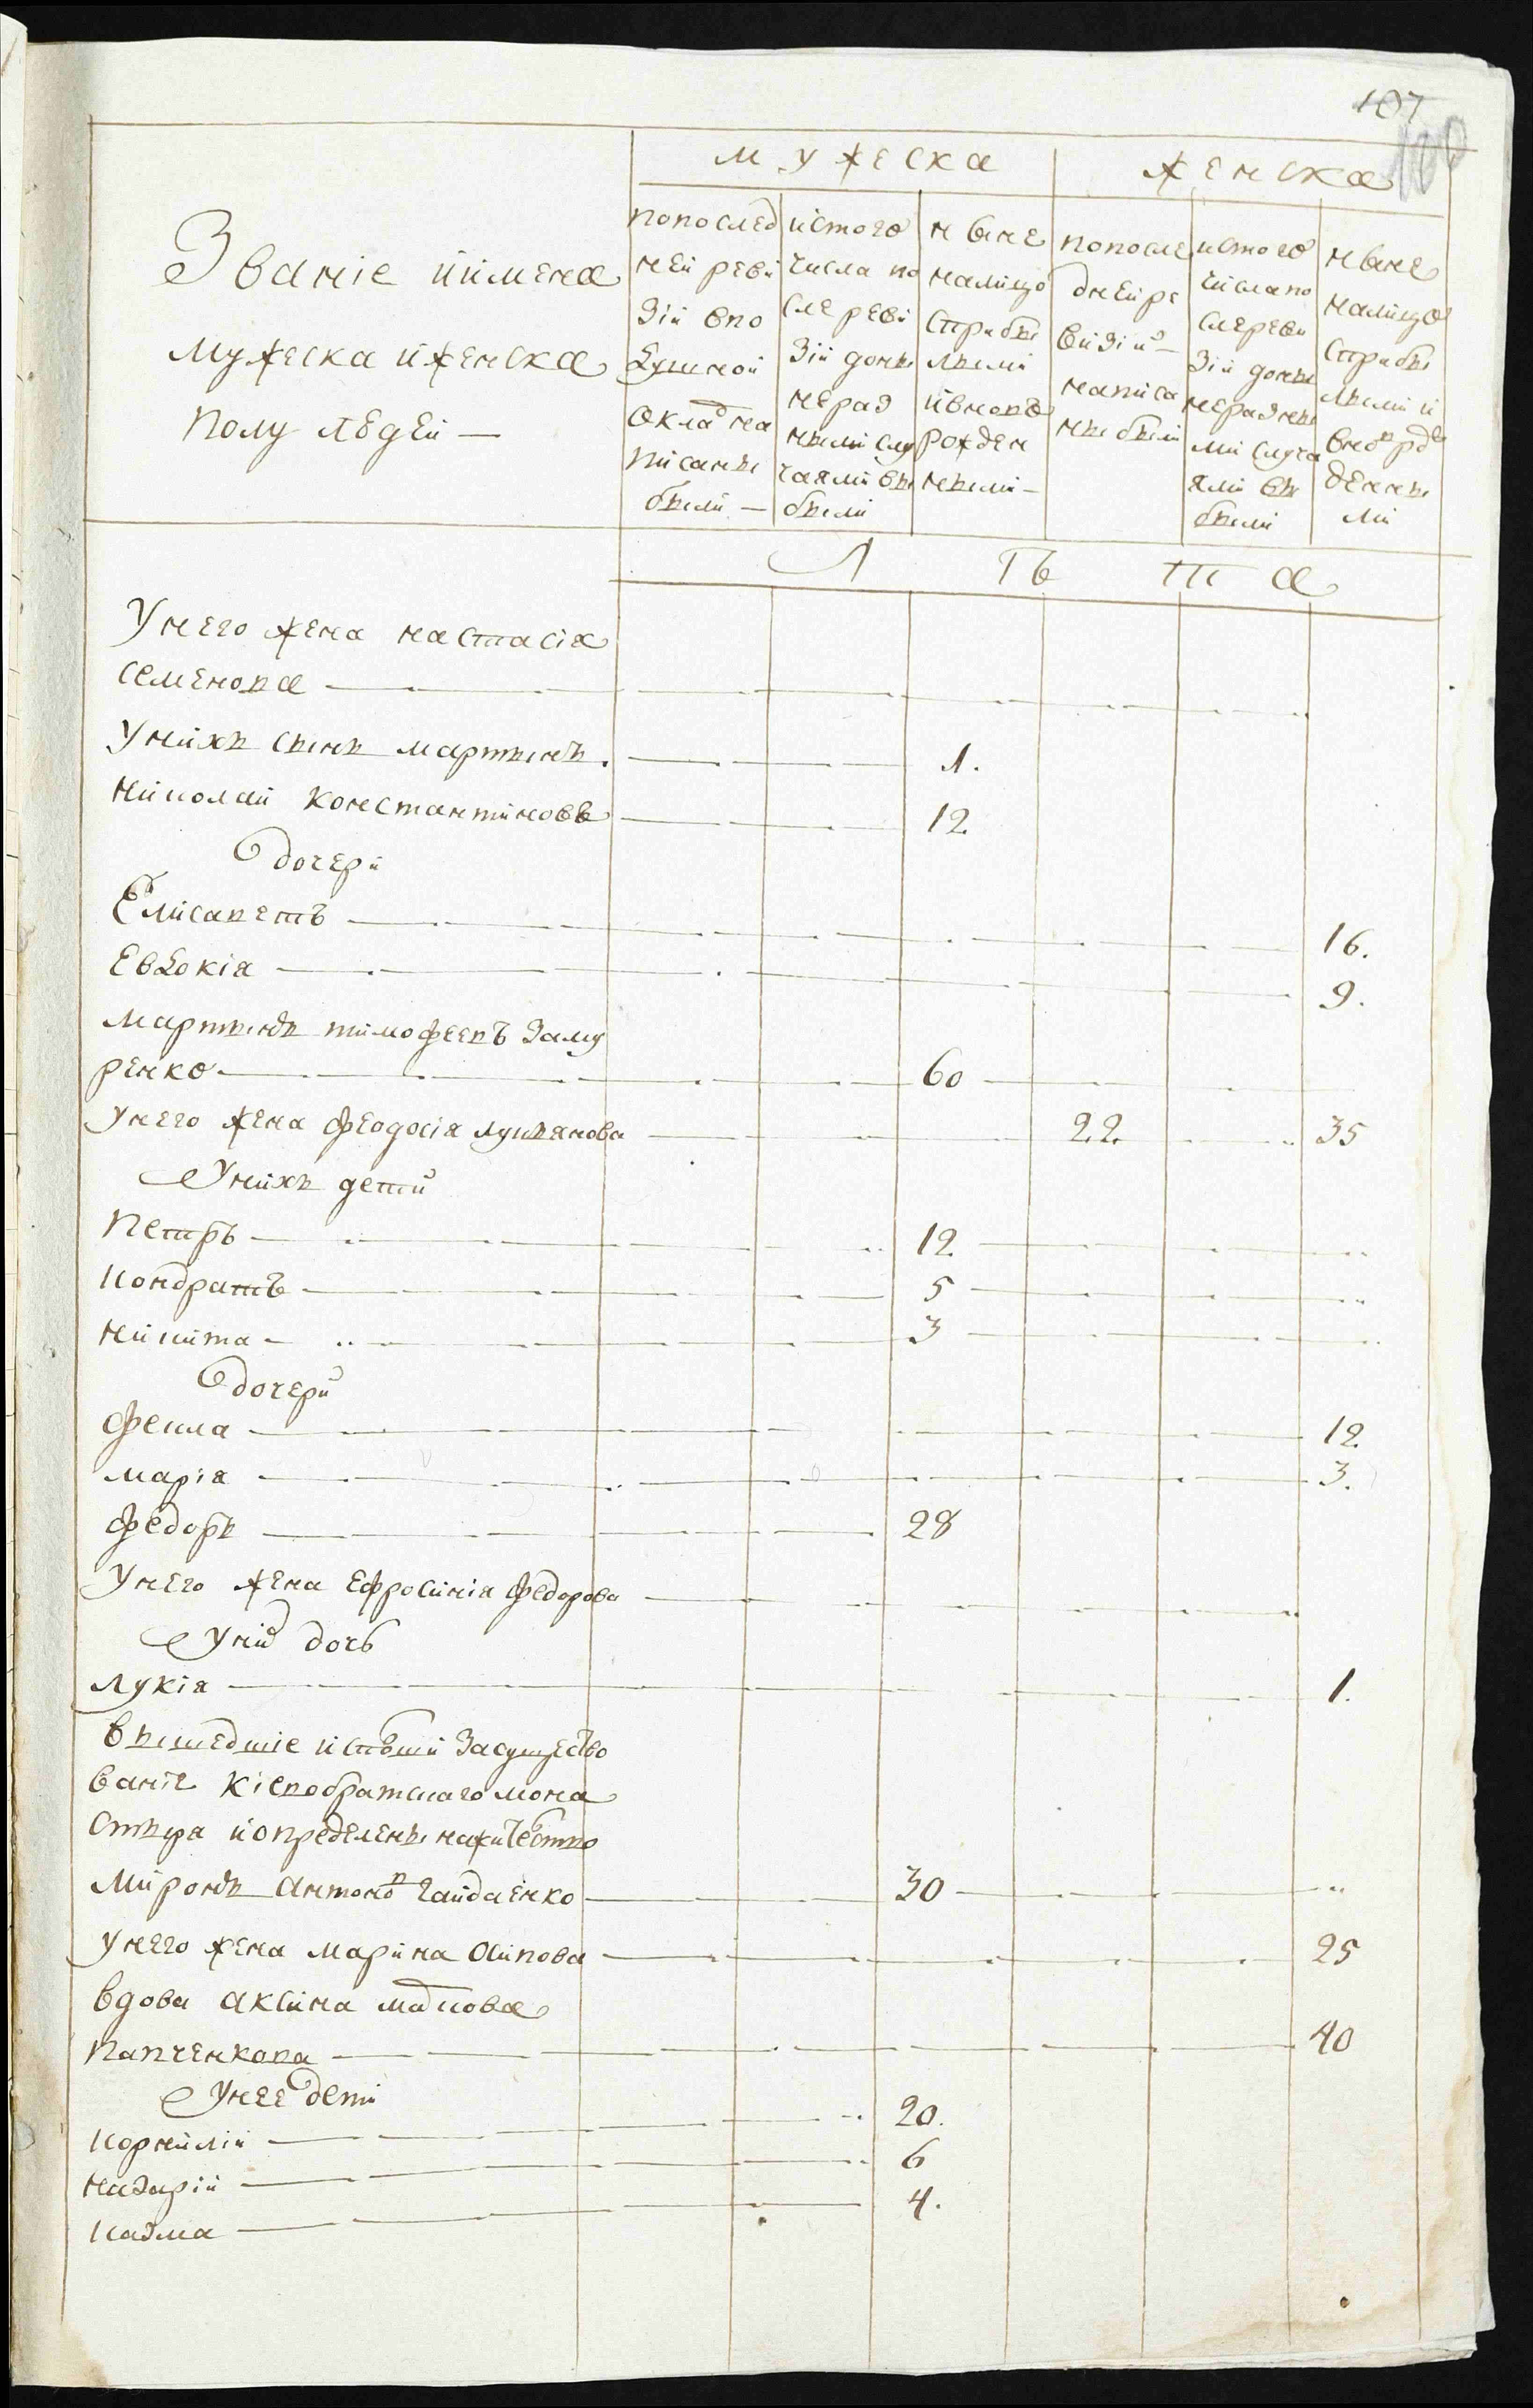 107
100
мужеска
женска
Званіе и имена
мужеска и женска
полу людей —
попослед
ней реви
зіи впо
душной
окладъ на
писаны
были —
истого
числа по
сле реви
зіи доны
не раз
ными слу
чаями вы
были
ныне
налицо
сприбы
лыми
и вновь
рожден
ными —
попосле
дней ре
визіи —
написа
ны были
истого
числа по
сле реви
зіи доны
не разны
ми случа
ями вы
были
ныне
налицо
сприбы
лыми и
вновь рож
денны
ми
Лѣта
Унего жена настасія
семенова
Унихъ сынъ мартынъ. 1.
Николай константиновъ 12
дочери
Елисаветъ 16.
Евдокія 9.
мартынъ тимофеевъ Заму
ренко 60
Унего жена феодосія лукянова 22. 35
Унихъ дети
петръ 12
кондратъ 5
никита 3
дочери
фекла 12
марія 3.
федоръ 28
Унего жена ефросинія федорова
Уних дочь
лукія 1.
вышедшіе изполши Засущество
ваніе кіевобратскаго мона
стыря и определены нажителство
миронъ антоновъ гайдаенко 30
Унего жена марина осипова 25
вдова аксина
павченкова 40
Унее дети
корнилій 20.
назарій 6
казма 4.